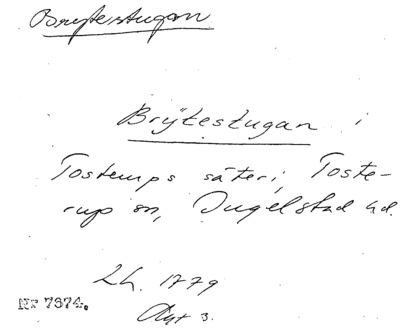 Brytestugan
Brÿtestugan i
Tosterups säteri, Toste-
rup sn, Ingelstad hd.
Lh. 1779
Akt 3.
Nr 7374.